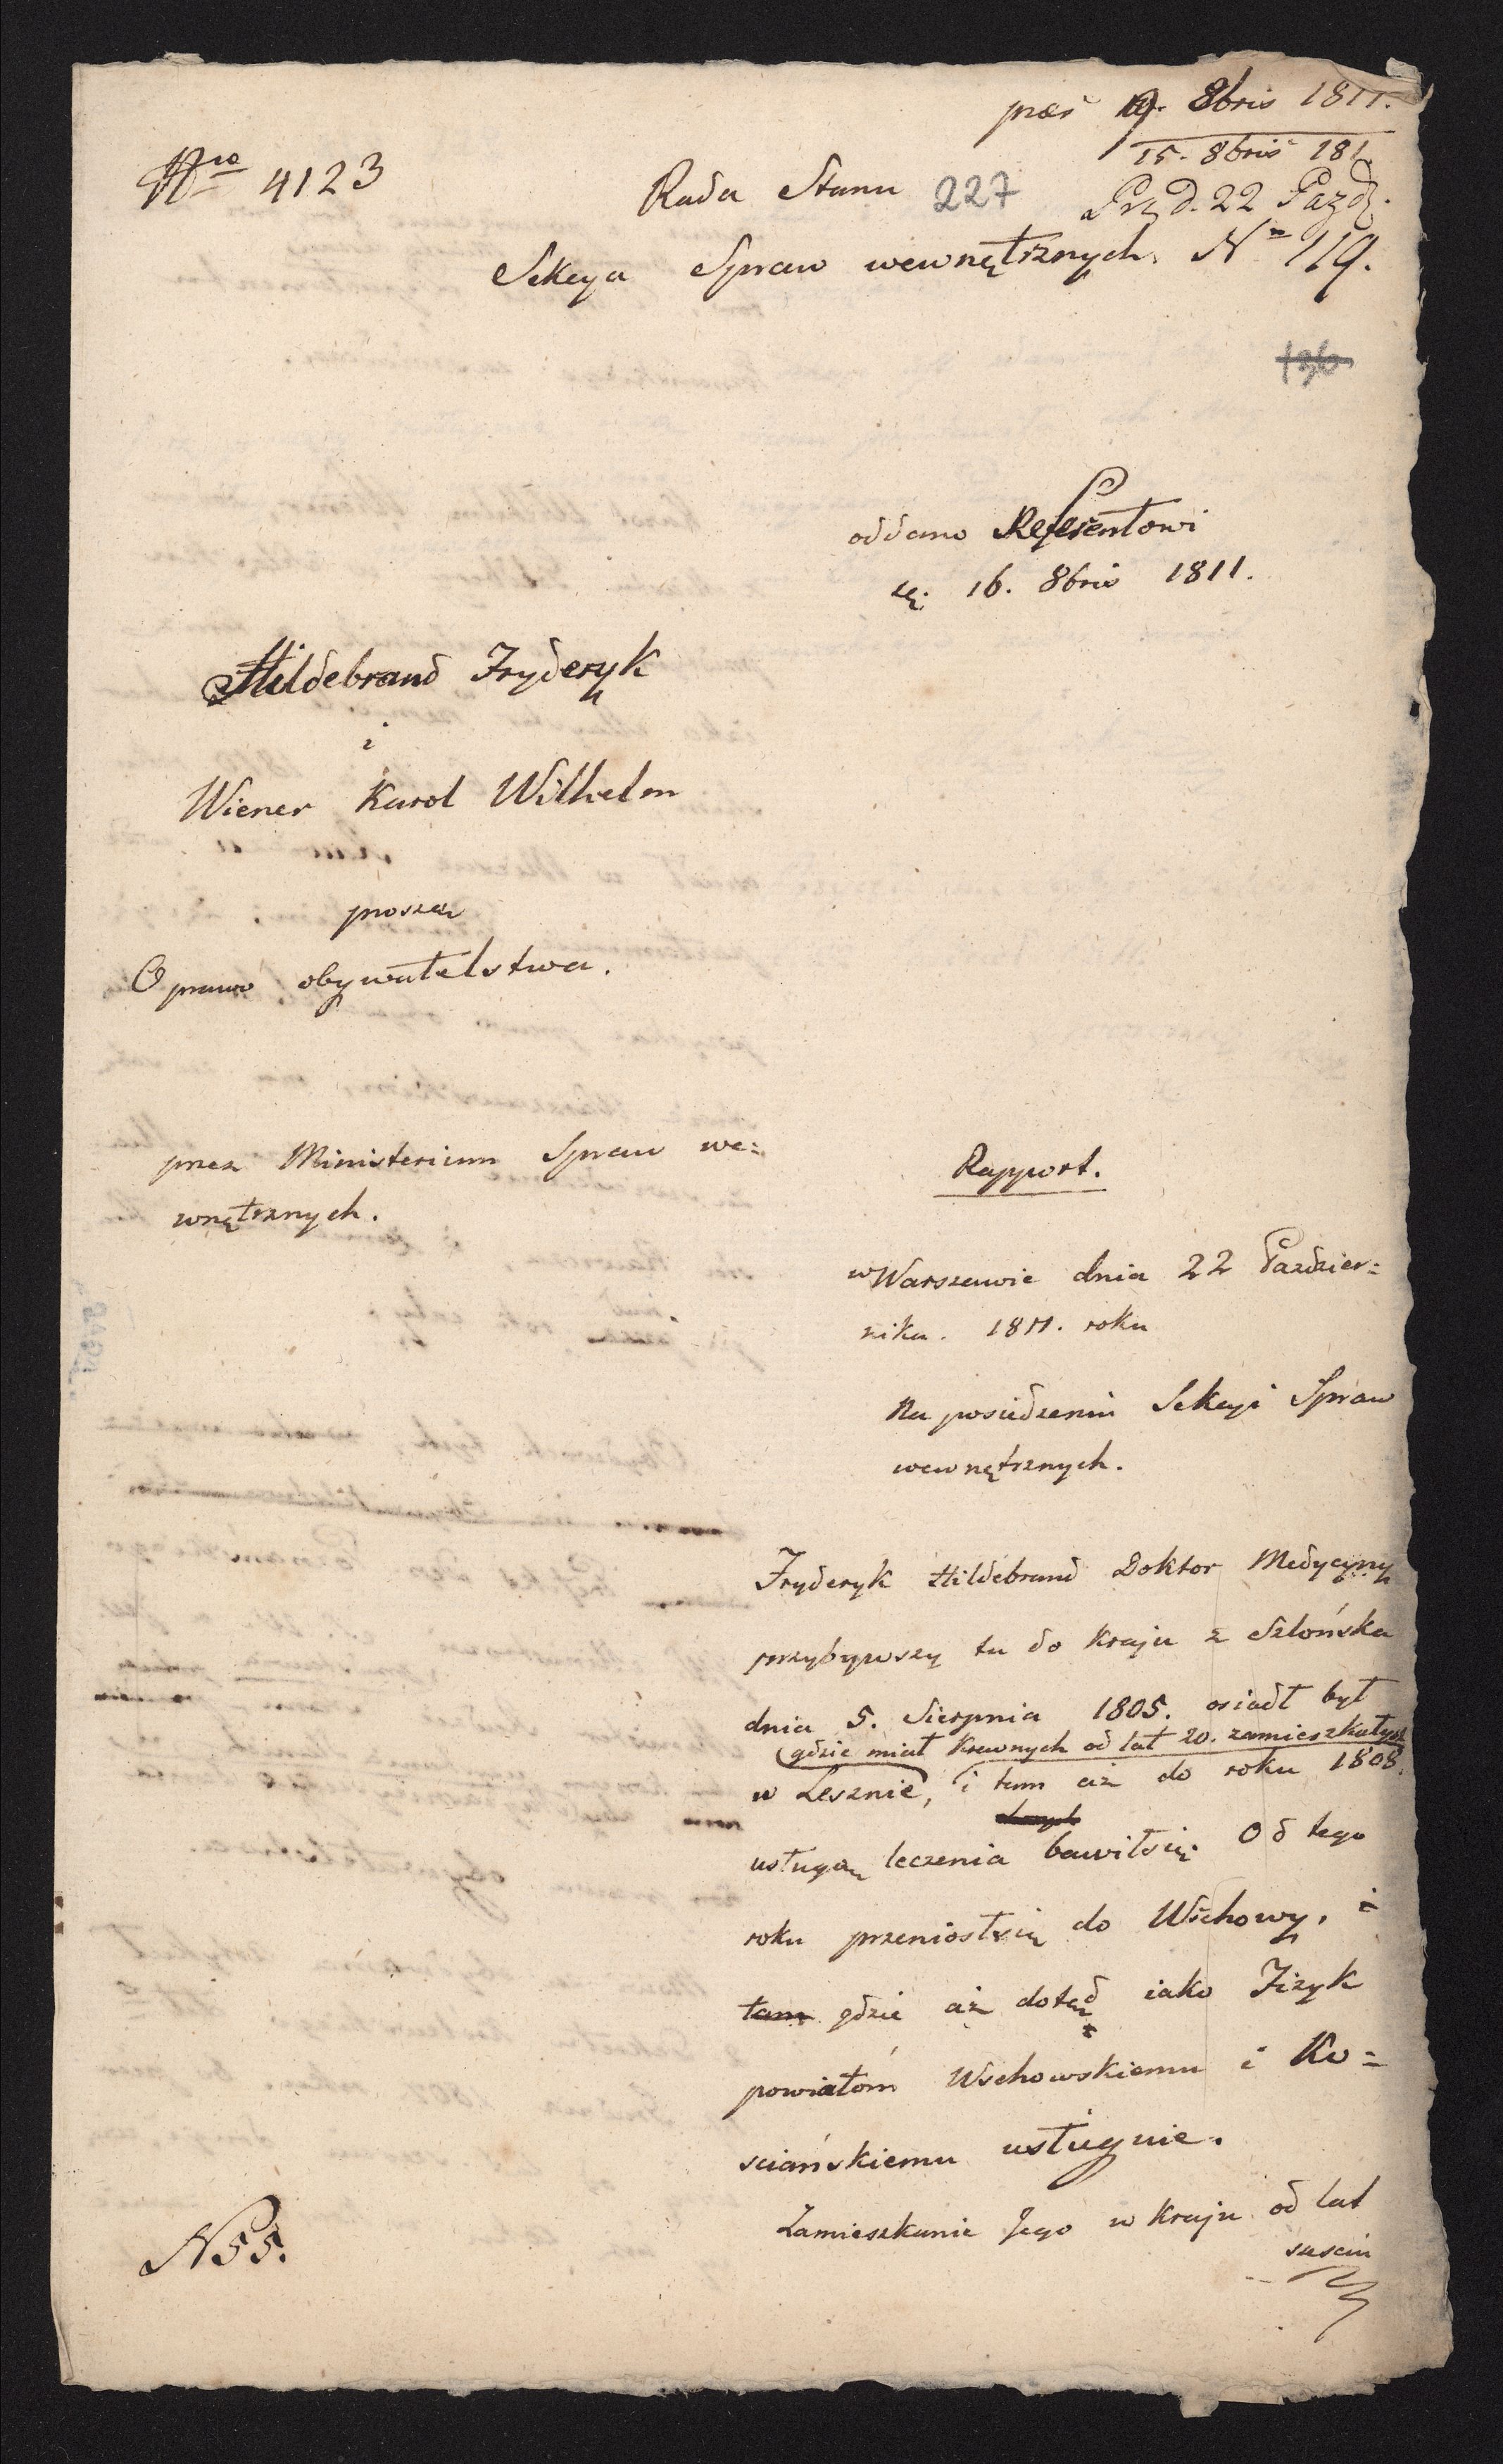 præs 9. 8bris 1811.
15. 8bris 181
Nro 4123
Rada Stanu 227
Prz d. 22 Paźdz.
Sekcya Spraw wewnętrznych. No 119.
136
oddano Referentowi
16. 8bris 1811.
Hildebrand Fryderyk
i
Wiener Karol Wilhelm
proszą
O prawo obywatelstwa.
przez Ministerium Spraw we=
wnętrznych.
Rapport.
w Warszawie dnia 22 Paździer=
nika. 1811. roku
Na posiedzeniu Sekcyi Spraw
wewnętrznych.
Fryderyk Hildebrand Doktor Medycyny
przybywszy tu do kraju z Szlońska
dnia 5. Sierpnia 1805. osiadł był
(gdzie miał krewnych od lat 20. zamieszkałych
w Lesznie, i tam aż do roku 1808.
usługą leczenia bawiłsię. Od tego
roku przeniosłsię do Wschowy, i
tam gdzie aż dotąd iako Fizyk
powiatom Wschowskiemu i Ko=
sciańskiemu usługuie.
Zamieszkanie Jego w kraju od lat
sześciu
N55.